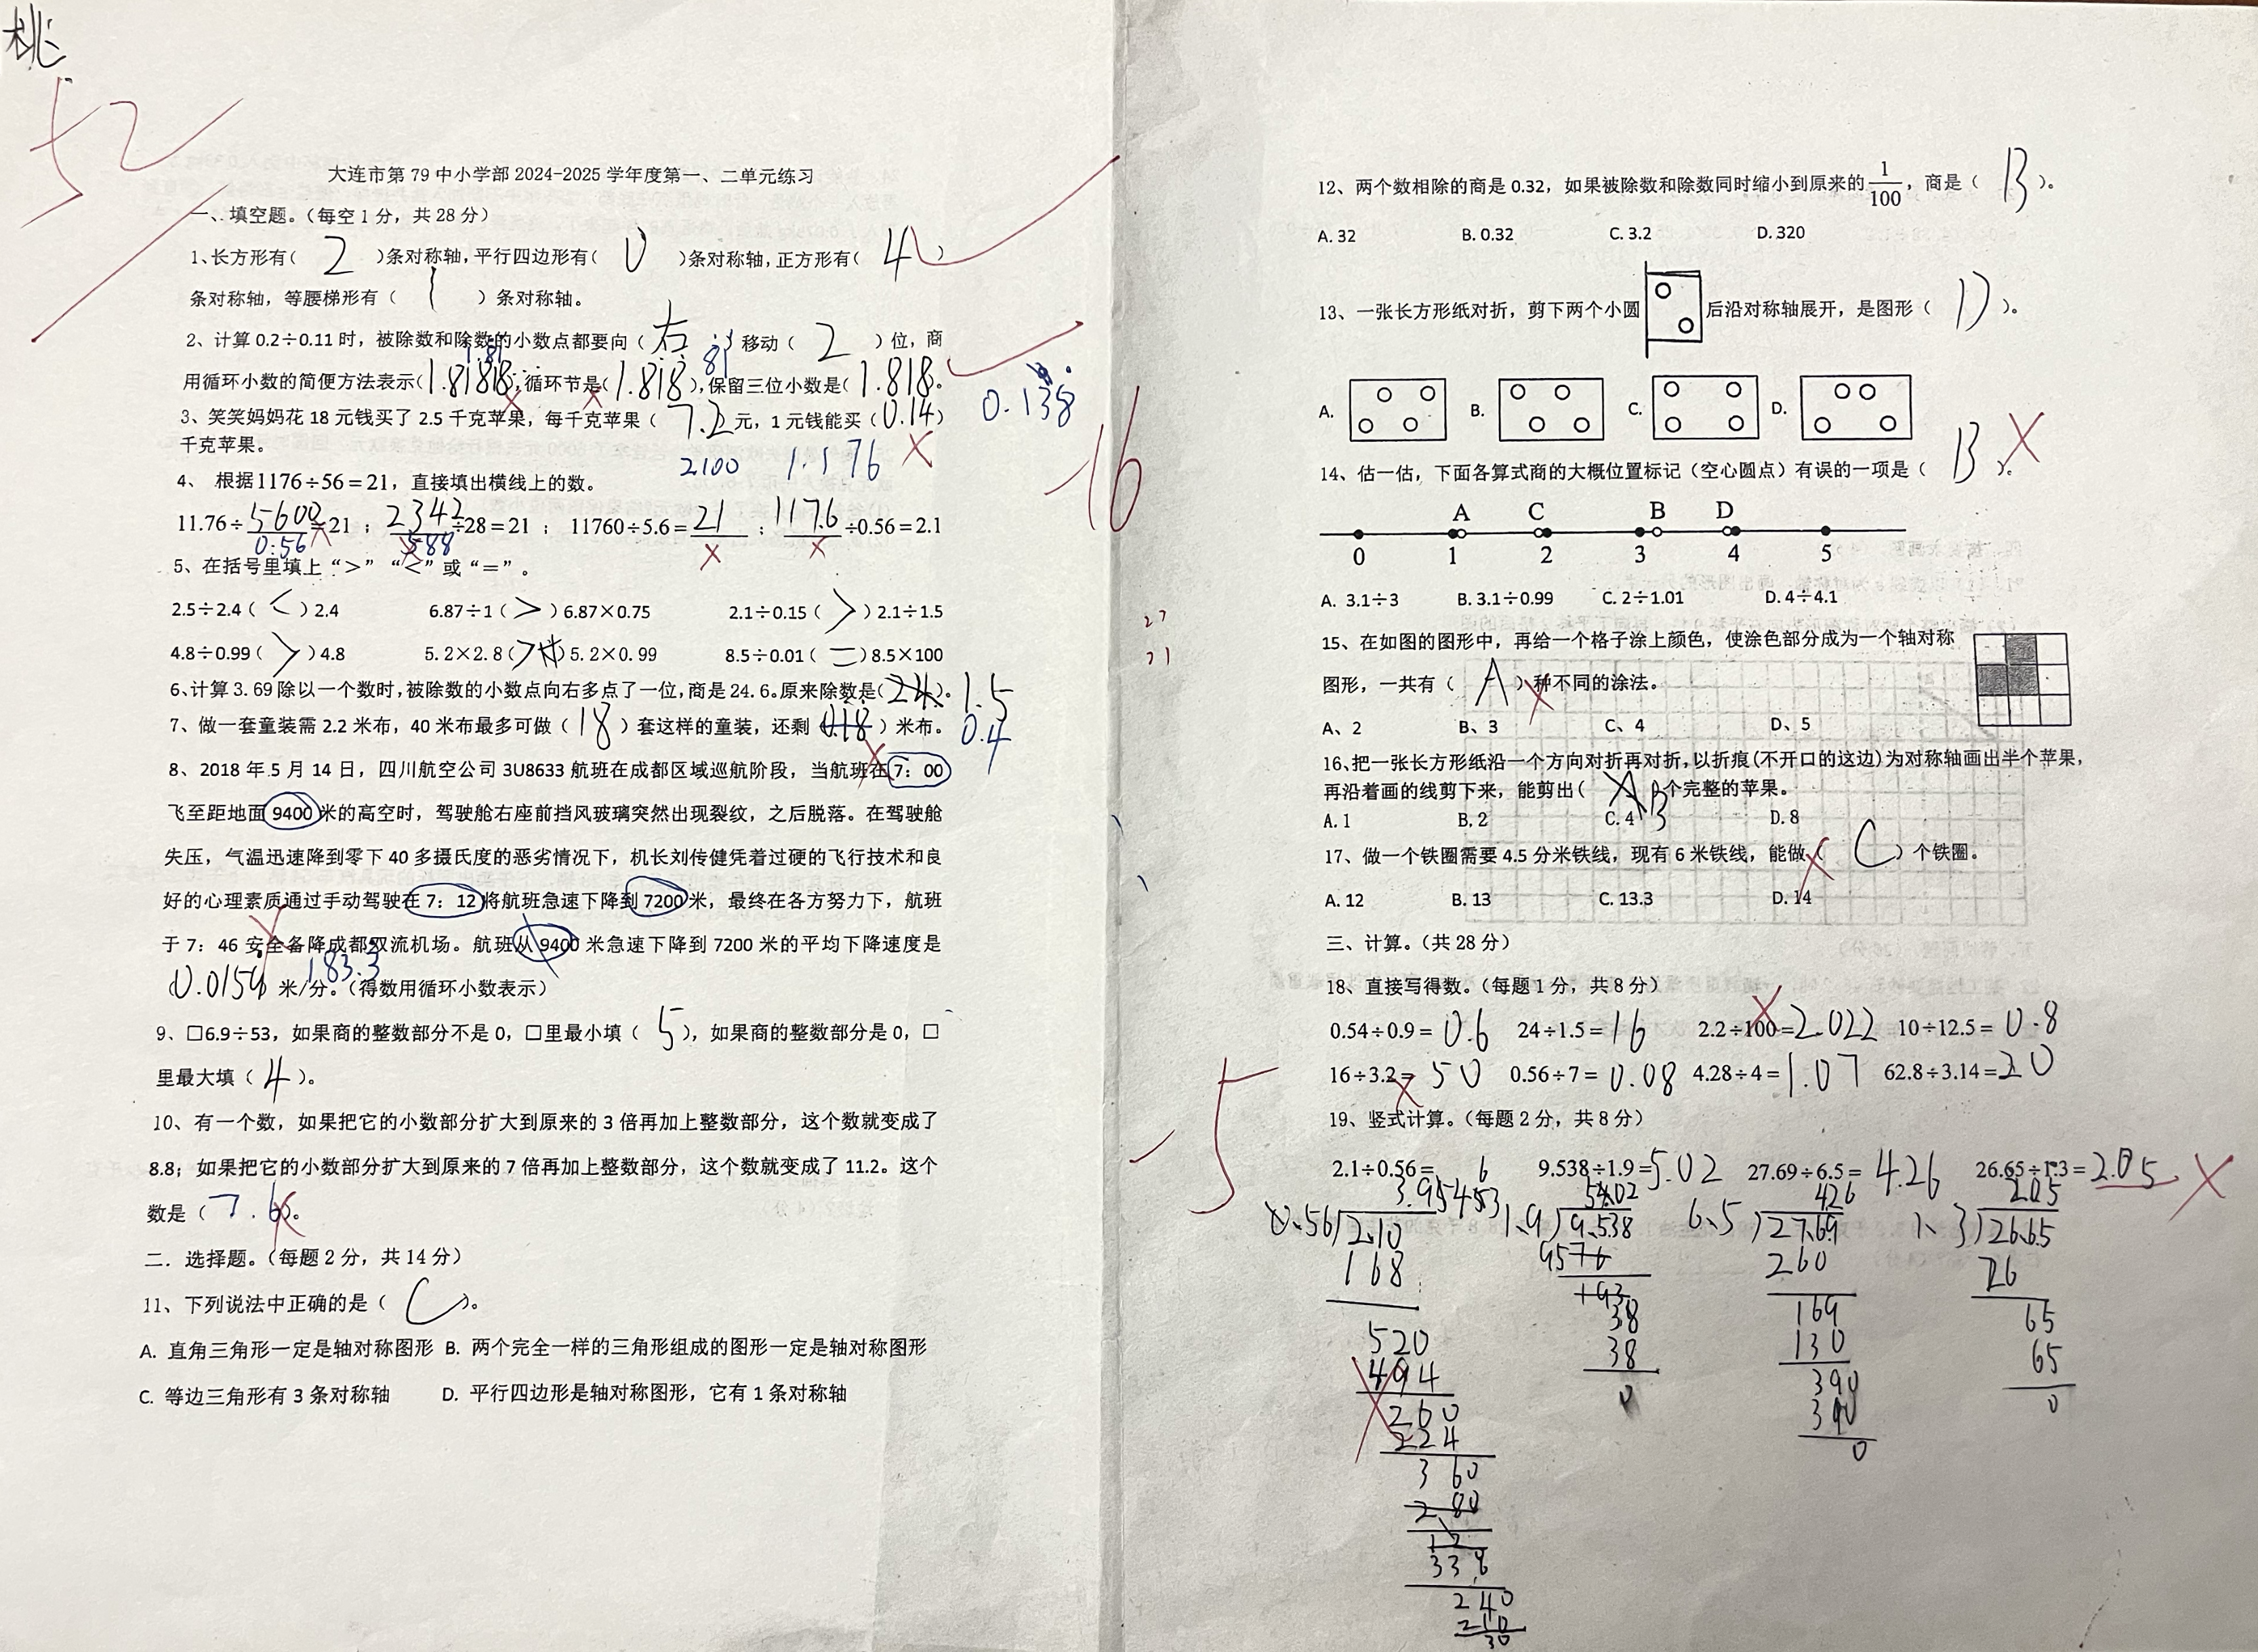 桃
52
大连市第 79 中小学部 2024-2025 学年度第一、二单元练习
一、填空题。(每空 1 分，共 28 分)
1、长方形有( 2 )条对称轴,平行四边形有( 0 )条对称轴,正方形有( 4 )
条对称轴，等腰梯形有( 1 )条对称轴。
2、计算 0.2÷0.11 时，被除数和除数的小数点都要向( 右 )移动( 2 )位，商
用循环小数的简便方法表示(1.81818),循环节是(1.818),保留三位小数是(1.818。
1.81
81
0.138
3、笑笑妈妈花 18 元钱买了 2.5 千克苹果，每千克苹果( 7.2 元，1 元钱能买(0.14)
千克苹果。
2100 1.176
-16
4、 根据1176÷56＝21，直接填出横线上的数。
11.76÷5600=21 ； 2342÷28＝21 ； 11760÷5.6＝21 ；117.6÷0.56＝2.1
0.56 588
5、在括号里填上“>” “<”或“=”。
2.5÷2.4( < )2.4 6.87÷1( > )6.87×0.75 2.1÷0.15( > )2.1÷1.5
4.8÷0.99( > )4.8 5.2×2.8( > )5.2×0.99 8.5÷0.01( = )8.5×100
6、计算 3.69 除以一个数时,被除数的小数点向右多点了一位,商是 24.6。原来除数是(24)。1.5
7、做一套童装需 2.2 米布，40 米布最多可做( 18 )套这样的童装，还剩(0.18)米布。0.4
8、2018 年 5 月 14 日，四川航空公司 3U8633 航班在成都区域巡航阶段，当航班在 7：00
飞至距地面 9400 米的高空时，驾驶舱右座前挡风玻璃突然出现裂纹，之后脱落。在驾驶舱
失压，气温迅速降到零下 40 多摄氏度的恶劣情况下，机长刘传健凭着过硬的飞行技术和良
好的心理素质通过手动驾驶在 7：12 将航班急速下降到 7200 米，最终在各方努力下，航班
于 7：46 安全备降成都双流机场。航班从 9400 米急速下降到 7200 米的平均下降速度是
183.3
(0.0154 米/分。(得数用循环小数表示)
9、□6.9÷53，如果商的整数部分不是 0，□里最小填( 5 )，如果商的整数部分是 0，□
里最大填( 4 )。
10、有一个数，如果把它的小数部分扩大到原来的 3 倍再加上整数部分，这个数就变成了
8.8；如果把它的小数部分扩大到原来的 7 倍再加上整数部分，这个数就变成了 11.2。这个
数是( 7.6 )。
二．选择题。(每题 2 分，共 14 分)
11、下列说法中正确的是( C )。
A. 直角三角形一定是轴对称图形 B. 两个完全一样的三角形组成的图形一定是轴对称图形
C. 等边三角形有 3 条对称轴 D. 平行四边形是轴对称图形，它有 1 条对称轴
12、两个数相除的商是 0.32，如果被除数和除数同时缩小到原来的1/100，商是( B )。
A. 32 B. 0.32 C. 3.2 D. 320
13、一张长方形纸对折，剪下两个小圆 后沿对称轴展开，是图形( D )。
A. B. C. D.
14、估一估，下面各算式商的大概位置标记（空心圆点）有误的一项是( B )。
A C B D
0 1 2 3 4 5
A. 3.1÷3 B. 3.1÷0.99 C. 2÷1.01 D. 4÷4.1
27
21
15、在如图的图形中，再给一个格子涂上颜色，使涂色部分成为一个轴对称
图形，一共有( A )种不同的涂法。
A、2 B、3 C、4 D、5
16、把一张长方形纸沿一个方向对折再对折,以折痕(不开口的这边)为对称轴画出半个苹果,
再沿着画的线剪下来，能剪出( A B 个完整的苹果。
A. 1 B. 2 C. 4 D. 8
17、做一个铁圈需要 4.5 分米铁线，现有 6 米铁线，能做( C )个铁圈。
A. 12 B. 13 C. 13.3 D. 14
三、计算。(共 28 分)
18、直接写得数。(每题 1 分，共 8 分)
0.54÷0.9＝ 0.6 24÷1.5＝ 16 2.2÷100＝2.022 10÷12.5＝ 0.8
16÷3.2＝ 50 0.56÷7＝ 0.08 4.28÷4＝1.07 62.8÷3.14＝20
-5
19、竖式计算。(每题 2 分，共 8 分)
2.1÷0.56＝ 9.538÷1.9＝5.02 27.69÷6.5＝ 4.26 26.65÷1.3＝2.05
6
3.95453 5.02 426 2.05
0.56 2.10 1.9 9.538 6.5 27.69 1.3 26.65
168 9576 260 26
520 38 169 65
494 38 130 65
260 0 390 0
224 390
360 0
280
12
338
240
210
30